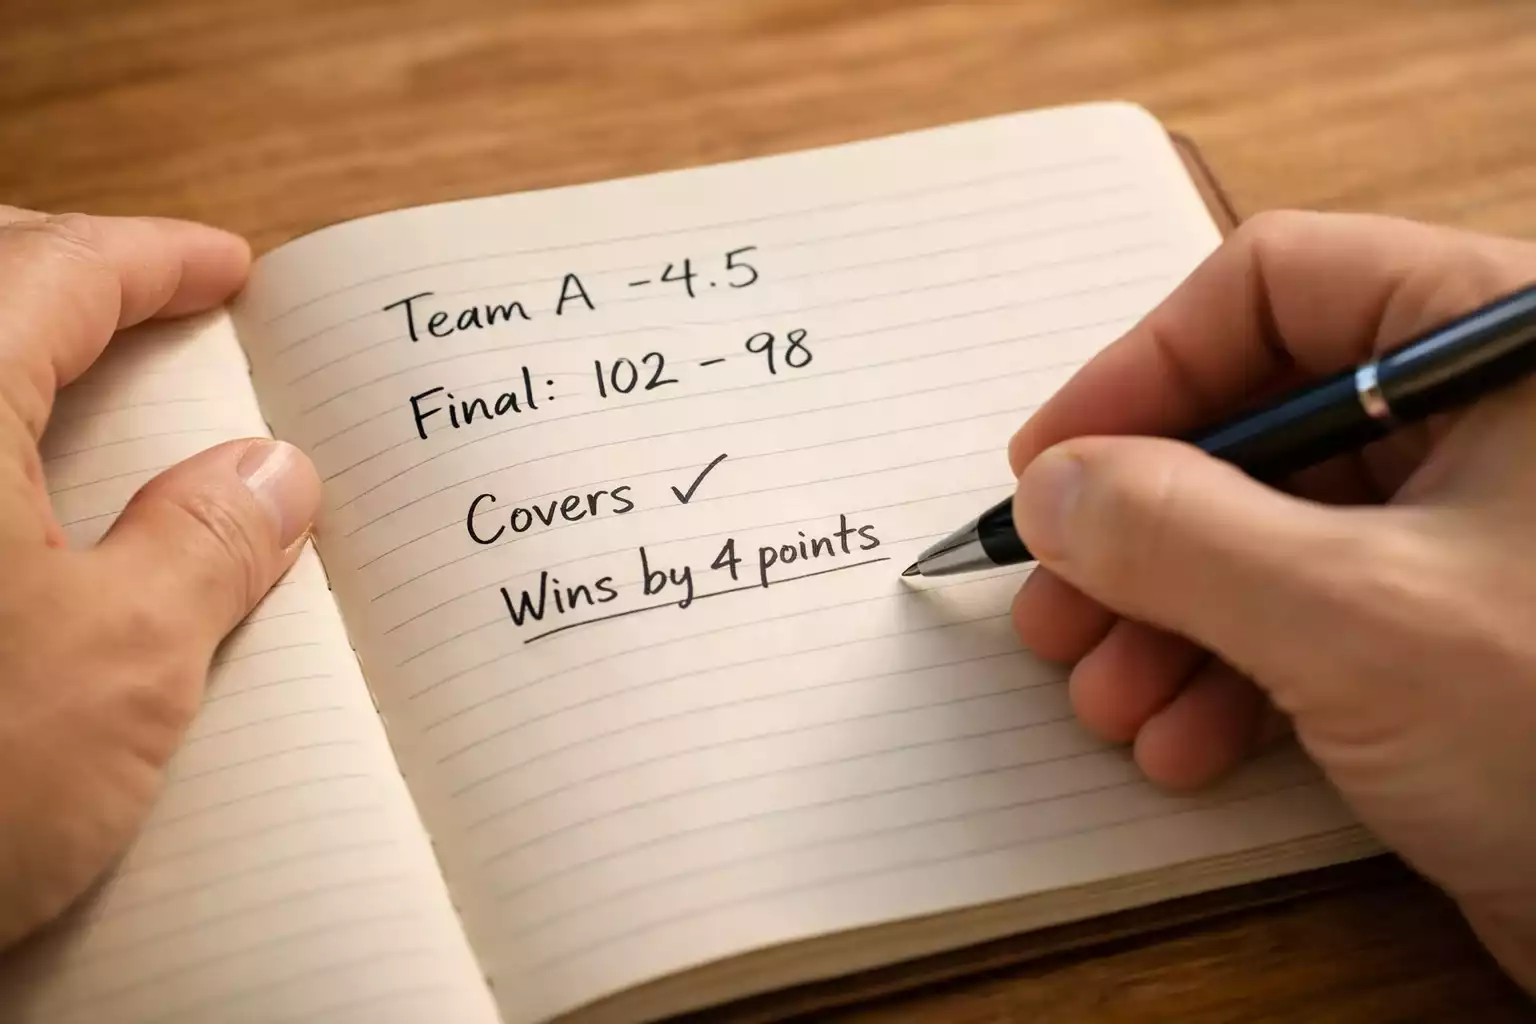 Team A -4.5
Final: 102 - 98
Covers ✓
Wins by 4 points